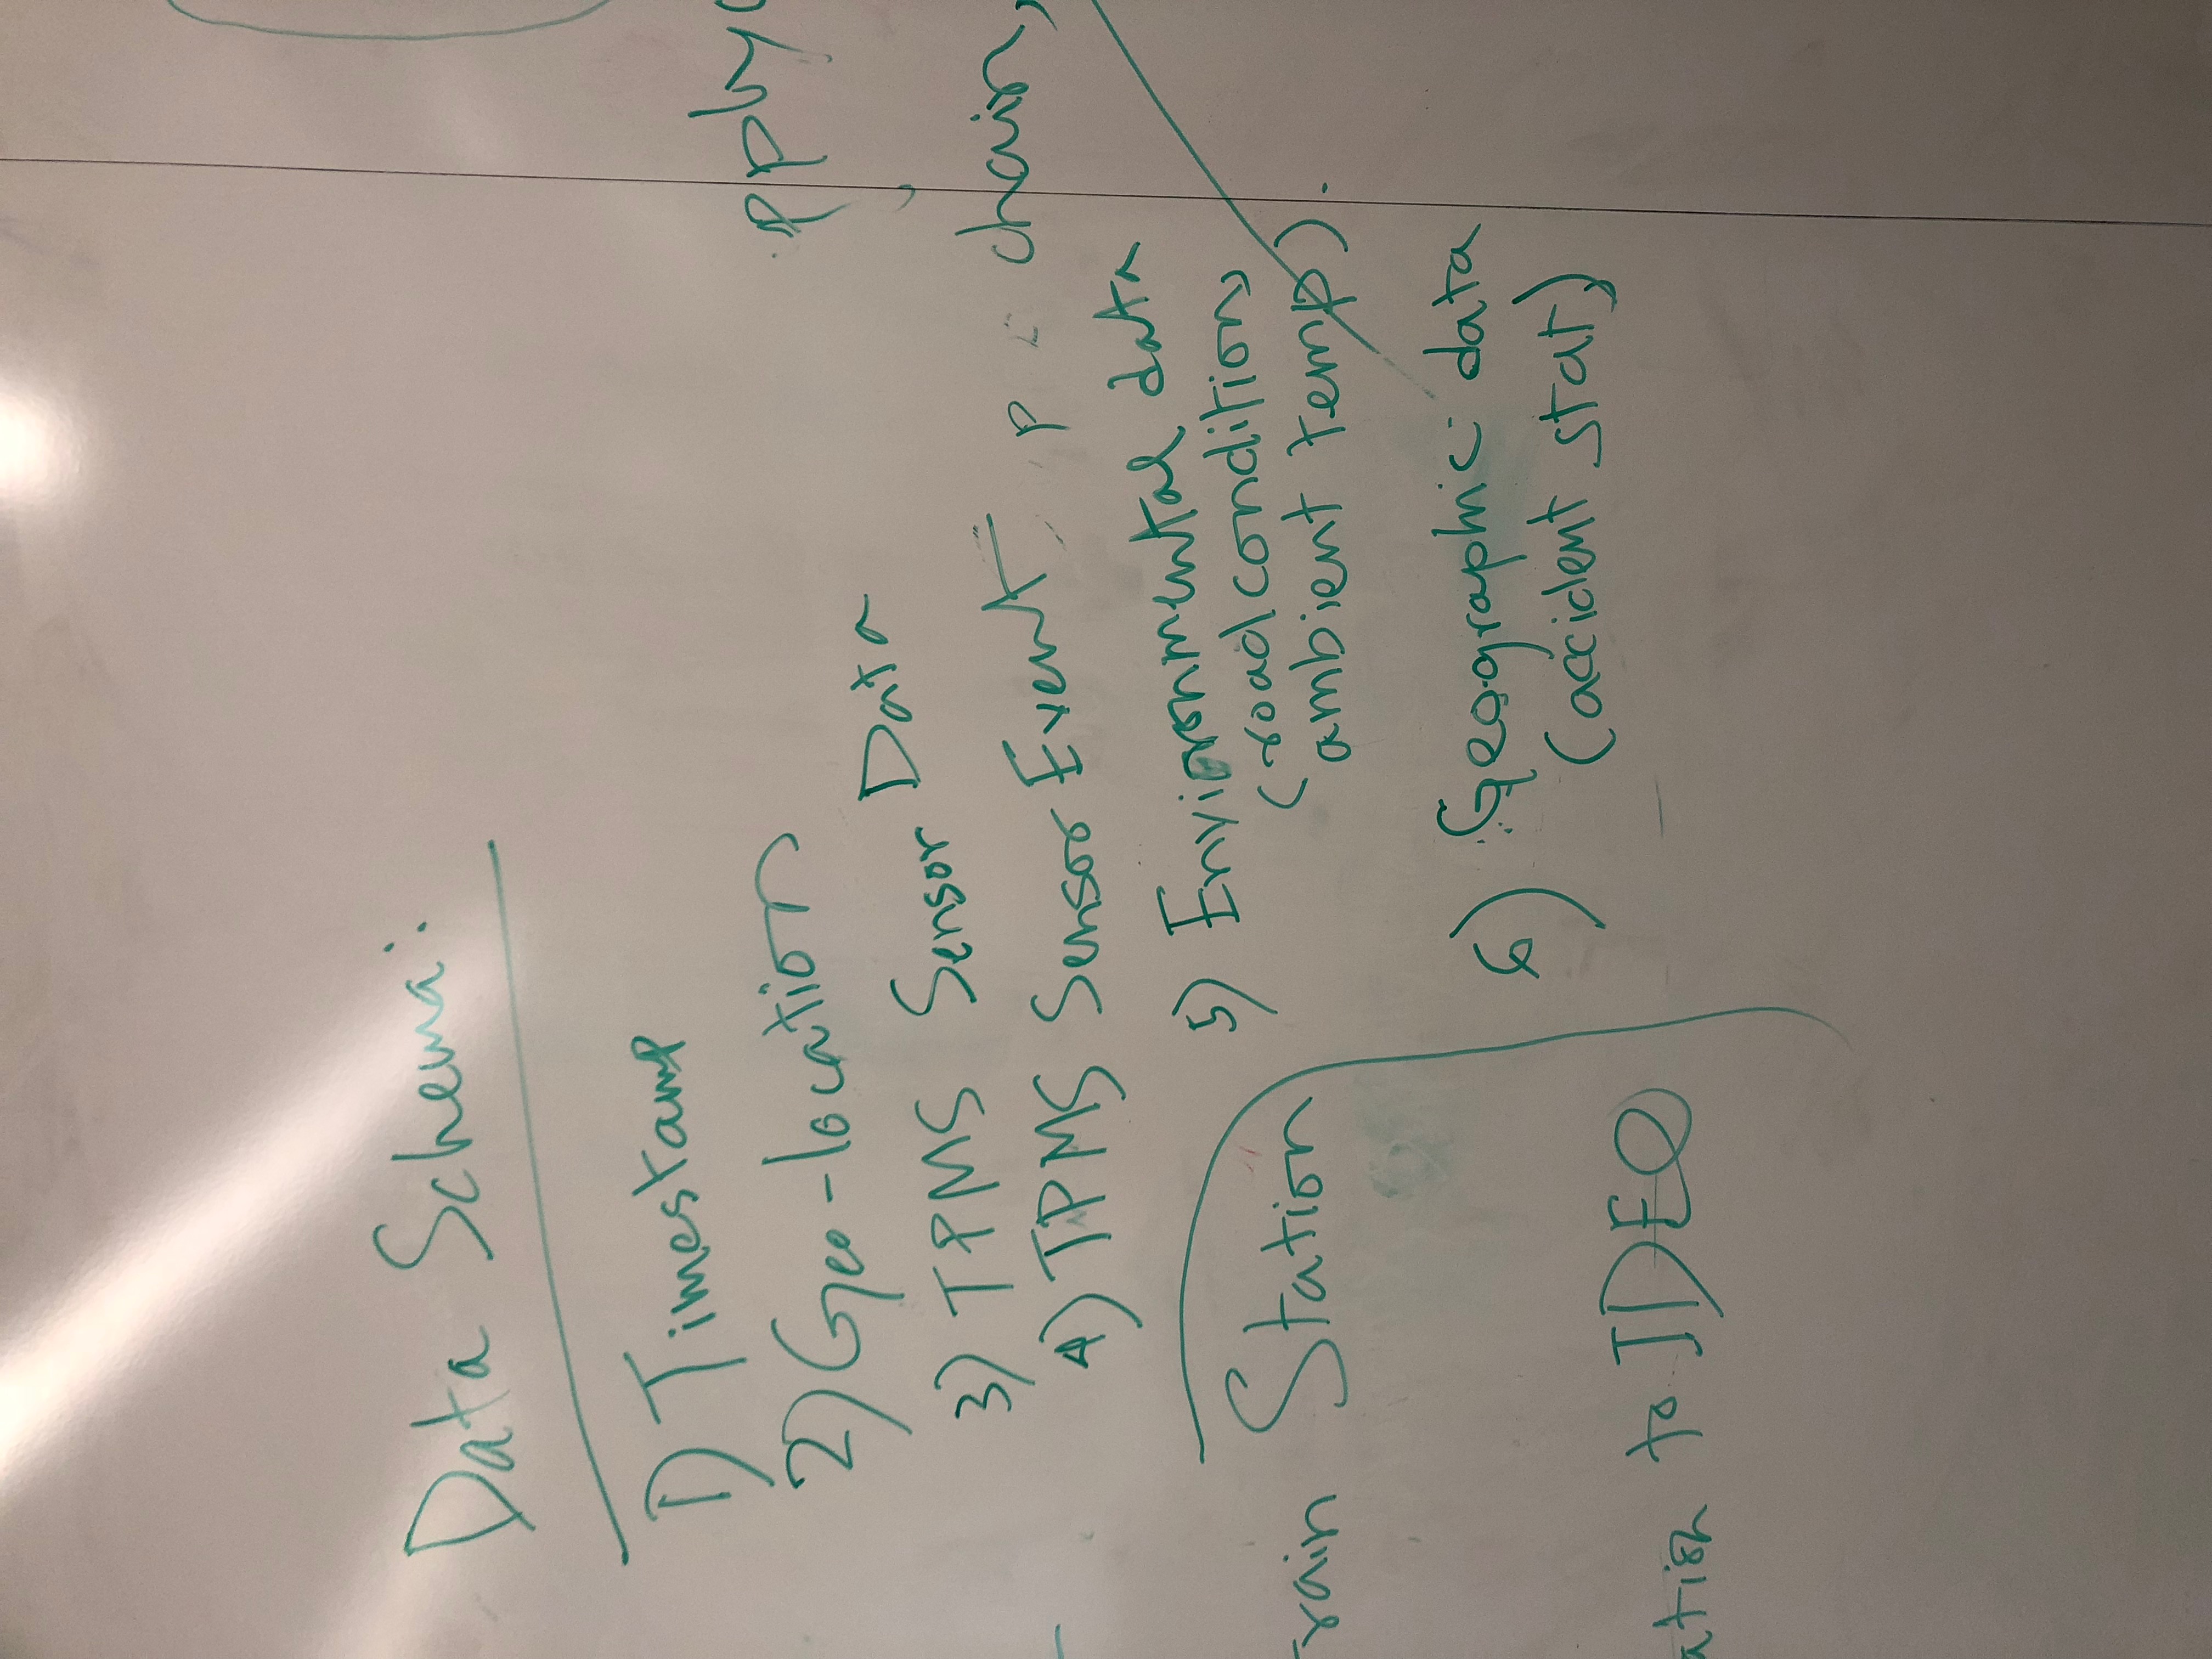 Data Schema:
1) Timestamp
2) Geo-location
3) TPMS Sensor Data
4) TPMS Sensor Event
5) Environmental data
(road condition,
ambient temp).
6) Geographic data
(accident stat)
rain Station
ation to IDEO
pply
p chain,